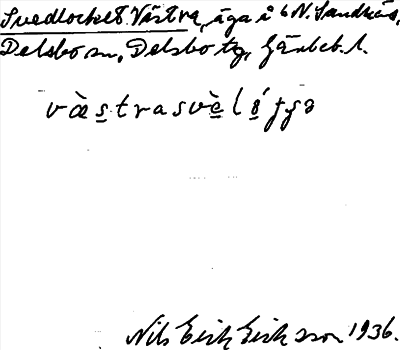 Svedlocket Västra, äga i 6 N. Sandnäs,
Delsbo sn, Delsbo tg, Gävleb. l.
væstrasvèløʃʃə
Nils Erik Eriksson 1936.